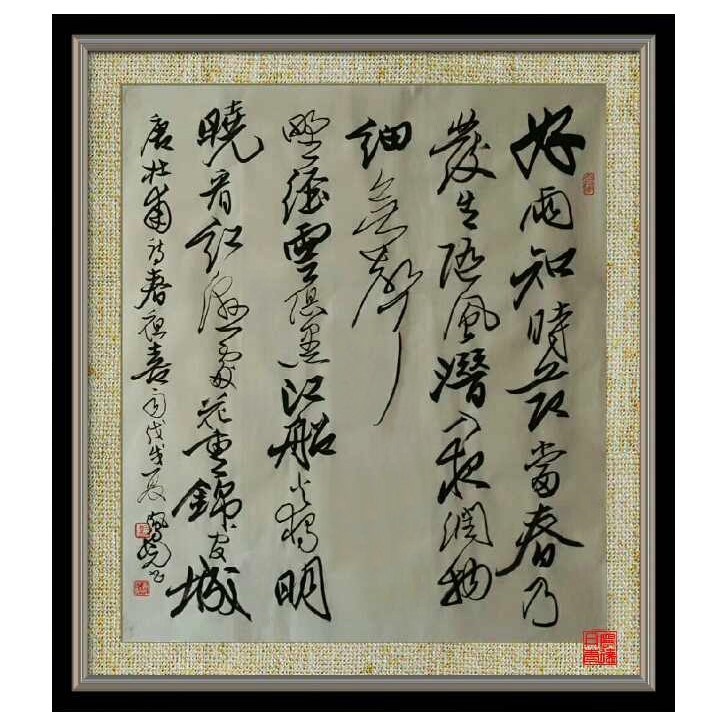 好雨知時節當春乃
發生随風潛入夜潤物
細無聲
野徑雲俱黑江船火獨明
曉看紅濕處花重錦官城
唐杜甫詩春夜喜雨戊戌夏